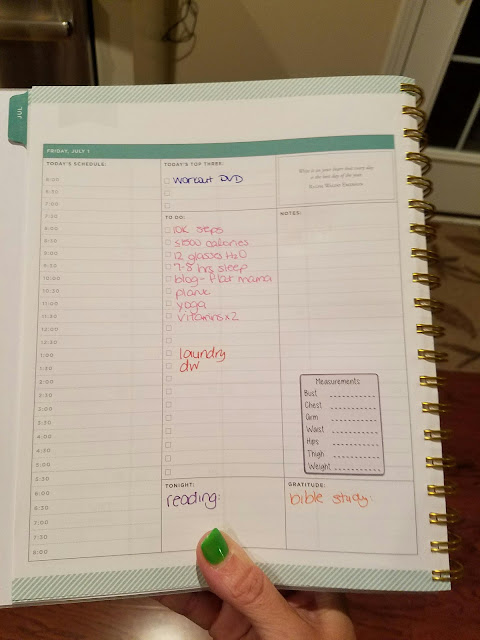 JUL
FRIDAY, JULY 1
TODAY'S SCHEDULE:
6:00
6:30
7:00
7:30
8:00
8:30
9:00
9:30
10:00
10:30
11:00
11:30
12:00
12:30
1:00
1:30
2:00
2:30
3:00
3:30
4:00
4:30
5:00
5:30
6:00
6:30
7:00
7:30
8:00
TODAY'S TOP THREE:
workout DVD
TO DO:
10K steps
≤1500 calories
12 glasses H2O
7-8 hrs sleep
blog - flat mama
plank
yoga
vitamins x2
laundry
dw
TONIGHT:
reading:
Write it on your heart that every day
is the best day of the year.
RALPH WALDO EMERSON
NOTES:
Measurements
Bust
Chest
Arm
Waist
Hips
Thigh
Weight
GRATITUDE:
bible study: